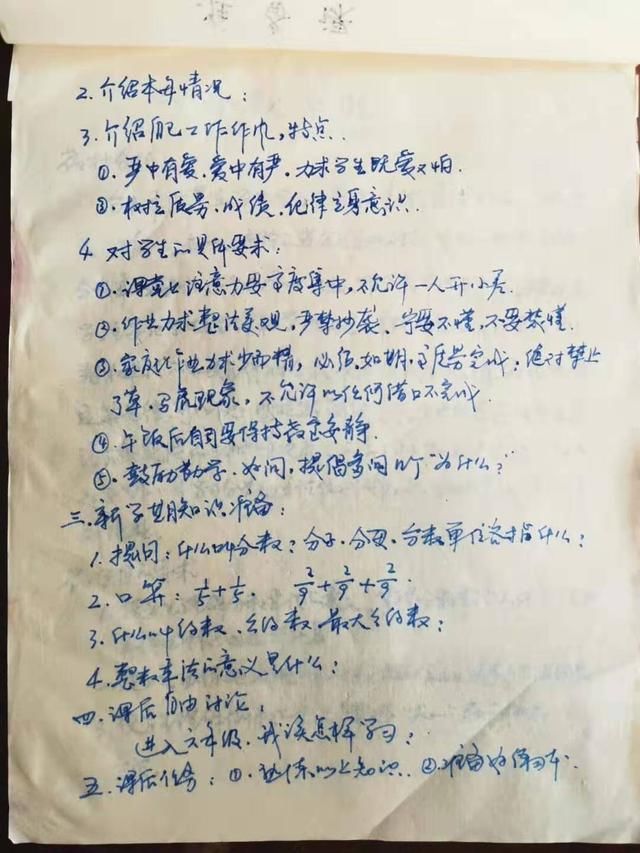 2. 介绍本册情况：
3. 介绍自己工作作风，特点．
①．严中有爱．爱中有严．力求学生既爱又怕．
②．树立质量．成绩．纪律立身意识．
4. 对学生的具体要求：
①．课堂上注意力要高度集中，不允许一人开小差．
②．作业力求整洁美观，严禁抄袭．宁要不懂，不要装懂．
③．家庭作业力求少而精，必须，如期，高质量完成；绝对禁止
了草，写展现象，不允许以任何借口不完成．
④．午饭后自习要保持教室安静．
⑤．鼓励勤学．好问，提倡多问几个“为什么？”
三．新学期知识准备：
1. 提问：什么叫分数？分子．分母．分数单位各指什么？
2. 口算：1/5+1/5． 2/9+2/9+2/9．
3. 什么叫约数．公约数．最大公约数；
4. 整数乘法的意义是什么；
四．课后自由讨论；
进入六年级．我该怎样学习；
五．课后任务：①．熟练以上知识．②．准备好练习本．